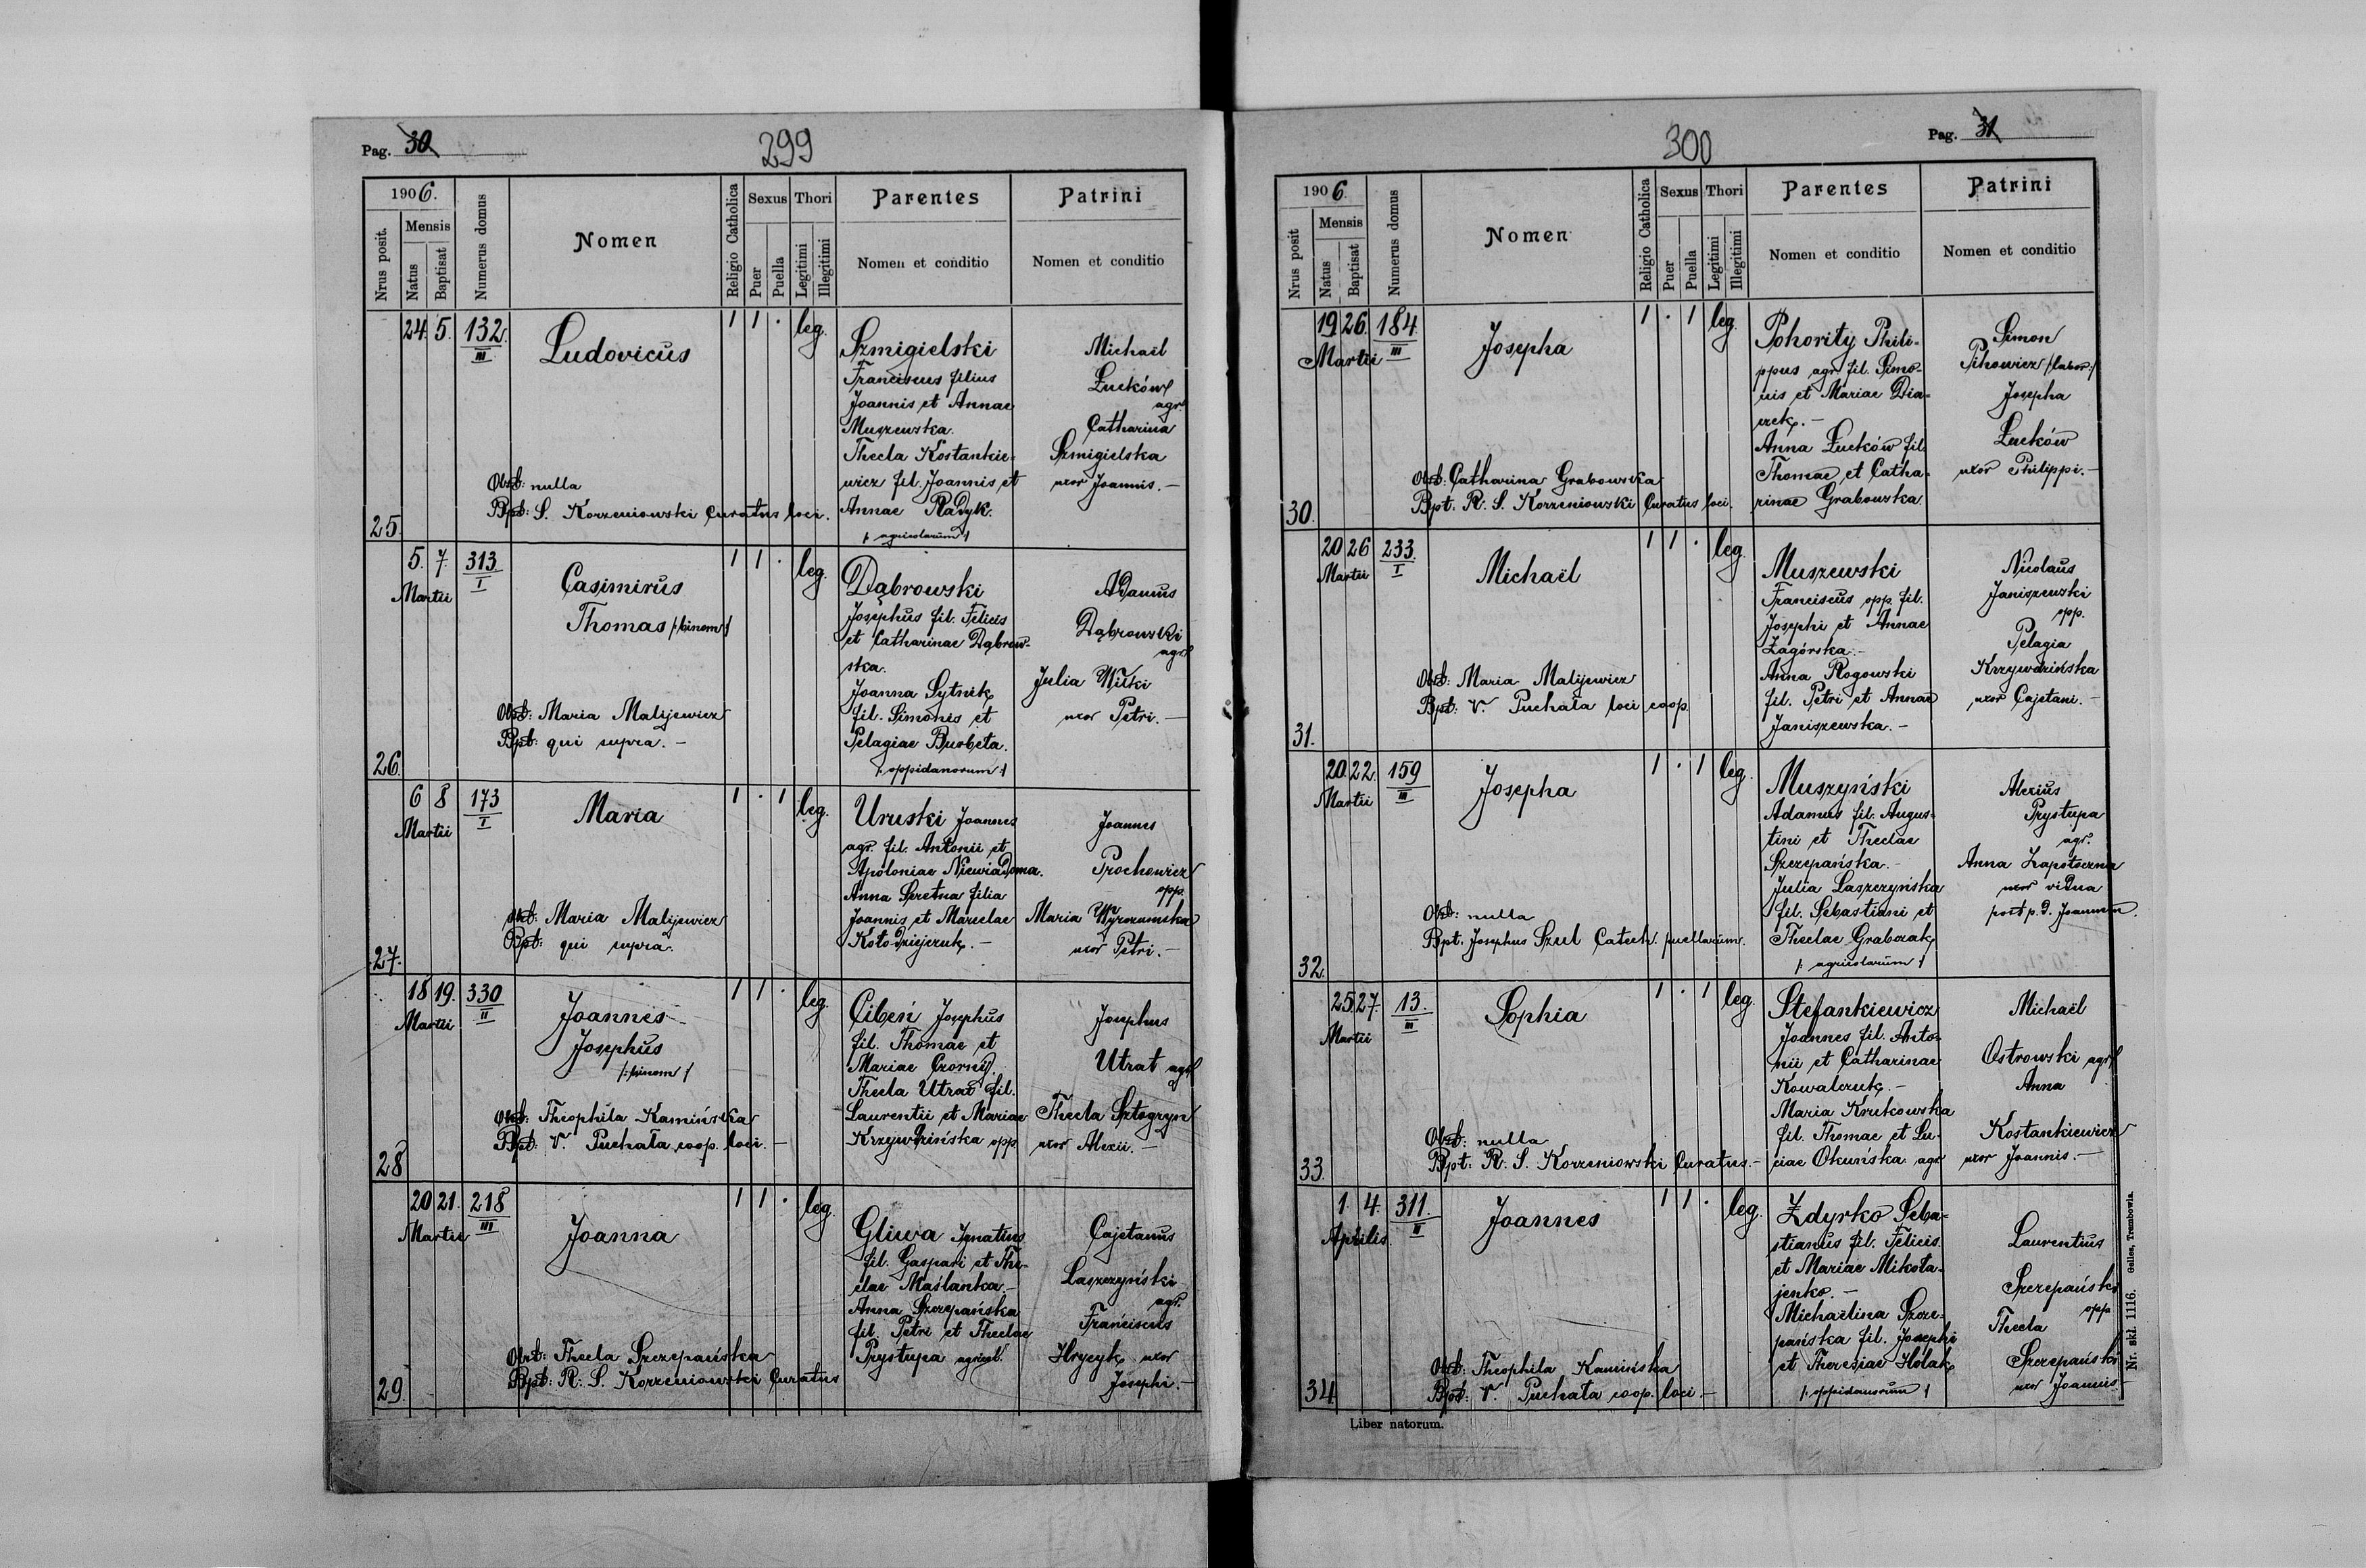 Pag. 30
299
1906.
Nrus posit.
Mensis
Natus
Baptisat
Numerus domus
Nomen
Religio Catholica
Sexus
Puer
Puella
Thori
Legitimi
Illegitimi
Parentes
Nomen et conditio
Patrini
Nomen et conditio
24. 5. 132.
III
Ludovicus
1 1 . leg.
Szmigielski
Franciscus filius
Joannis et Annae
Muszewska.
Thecla Kostankie-
wicz fil. Joannis et
Annae Radyk.
/: agricolarum :/
Michaël
Łucków
agr.
Catharina
Szmigielska
uxor Joannis. —
Obst: nulla
Bpt: S. Korzeniowski Curatus loci.
25.
5. 7. 313.
I
Martii
Casimirus
Thomas /:binom:/
1 1 . leg.
Dąbrowski
Josephus fil. Felicis
et Catharinae Dąbrow-
ska.
Joanna Sytnik
fil. Simonis et
Pelagiae Burbeta.
/: oppidanorum :/
Adamus
Dąbrowski
agr.
Julia Witki
uxor Petri. —
Obst: Maria Malijewicz
Bpt: qui supra. —
26.
6 8 173
I
Martii
Maria
1 . 1 leg.
Uruski Joannes
agr. fil. Antonii et
Apoloniae Niewiadoma.
Anna Spretna filia
Joannis et Marcelae
Kołodziejczuk. —
Joannes
Prochowicz
opp.
Maria Wyrozumska
uxor Petri. —
obst: Maria Malijewicz
Bpt: qui supra.
27.
18 19. 330
II
Martii
Joannes
Josephus
/:binom:/
1 1 . leg.
Cibeń Josephus
fil. Thomae et
Mariae Czorny.
Thecla Utrat fil.
Laurentii et Mariae
Krzywdzińska opp.
Josephus
Utrat agr.
Thecla Sztogryn
uxor Alexii. —
Obst: Theophila Kamińska
Bpt: V. Puchała coop. loci. —
28
20 21. 218
III
Martii
Joanna
1 1 . leg.
Gliwa Ignatius
fil. Gaspari et The-
clae Maślanka. —
Anna Szczepańska
fil. Petri et Theclae
Prystupa agricol.
Cajetanus
Laszczyński
agr.
Franciscus
Hrycyk uxor
Josephi. —
Obst: Thecla Szczepańska
Bpt: R. S. Korzeniowski Curatus
29.
300
Pag. 31
1906.
Nrus posit
Mensis
Natus
Baptisat
Numerus domus
Nomen
Religio Catholica
Sexus
Puer
Puella
Thori
Legitimi
Illegitimi
Parentes
Nomen et conditio
Patrini
Nomen et conditio
19. 26. 184.
III
Martii
Josepha
1 . 1 leg.
Pohority Phili-
ppus agr. fil. Simo-
nis et Mariae Dia-
czek. —
Anna Łucków fil.
Thomae et Catha-
rinae Grabowska.
Simon
Pihowicz /:labor:/
Josepha
Łucków
uxor Philippi. —
Obst: Catharina Grabowska
Bpt. R. S. Korzeniowski Curatus loci.
30.
20 26 233.
I
Martii
Michaël
1 1 . leg.
Muszewski
Franciscus opp. fil.
Josephi et Annae
Zagórska. —
Anna Rogowski
fil. Petri et Annae
Janiszewska. —
Nicolaus
Janiszewski
opp.
Pelagia
Krzywdzińska
uxor Cajetani. —
Obst: Maria Malijewicz
Bpt: V. Puchała loci coop.
31.
20. 22. 159
III
Martii
Josepha
1 . 1 leg.
Muszyński
Adamus fil. Augus-
tini et Theclae
Szczepańska. —
Julia Laszczyńska
fil. Sebastiani et
Theclae Grabczak
/: agricolarum :/
Alexius
Prystupa
agr.
Anna Zapotoczna
uxor vidua
post p. d. Joannem.
Obst: nulla
Bpt. Josephus Szul Catech. puellarum.
32.
25. 27. 13.
III
Martii
Sophia
1 . 1 leg.
Stefankiewicz
Joannes fil. Anto-
nii et Catharinae
Kowalczuk. —
Maria Krutkowska
fil. Thomae et Lu-
ciae Okuńska agr.
Michaël
Ostrowski agr.
Anna
Kostankiewicz
uxor Joannis. —
Obst: nulla
Bpt: R. S. Korzeniowski Curatus. —
33.
1. 4. 311.
II
Aprilis
Joannes
1 1 . leg.
Zdyrko Seba-
stianus fil. Felicis
et Mariae Mikoła-
jenko. —
Michaëlina Szcze-
pańska fil. Josephi
et Theresiae Hołak
/: oppidanorum :/
Laurentius
Szczepański
opp
Thecla
Szczepański
uxor Joannis
Obst: Theophila Kamińska
Bpt: V. Puchała coop. loci —
34.
Liber natorum.
Nr. skl. 1116. Gelles, Trembowla.